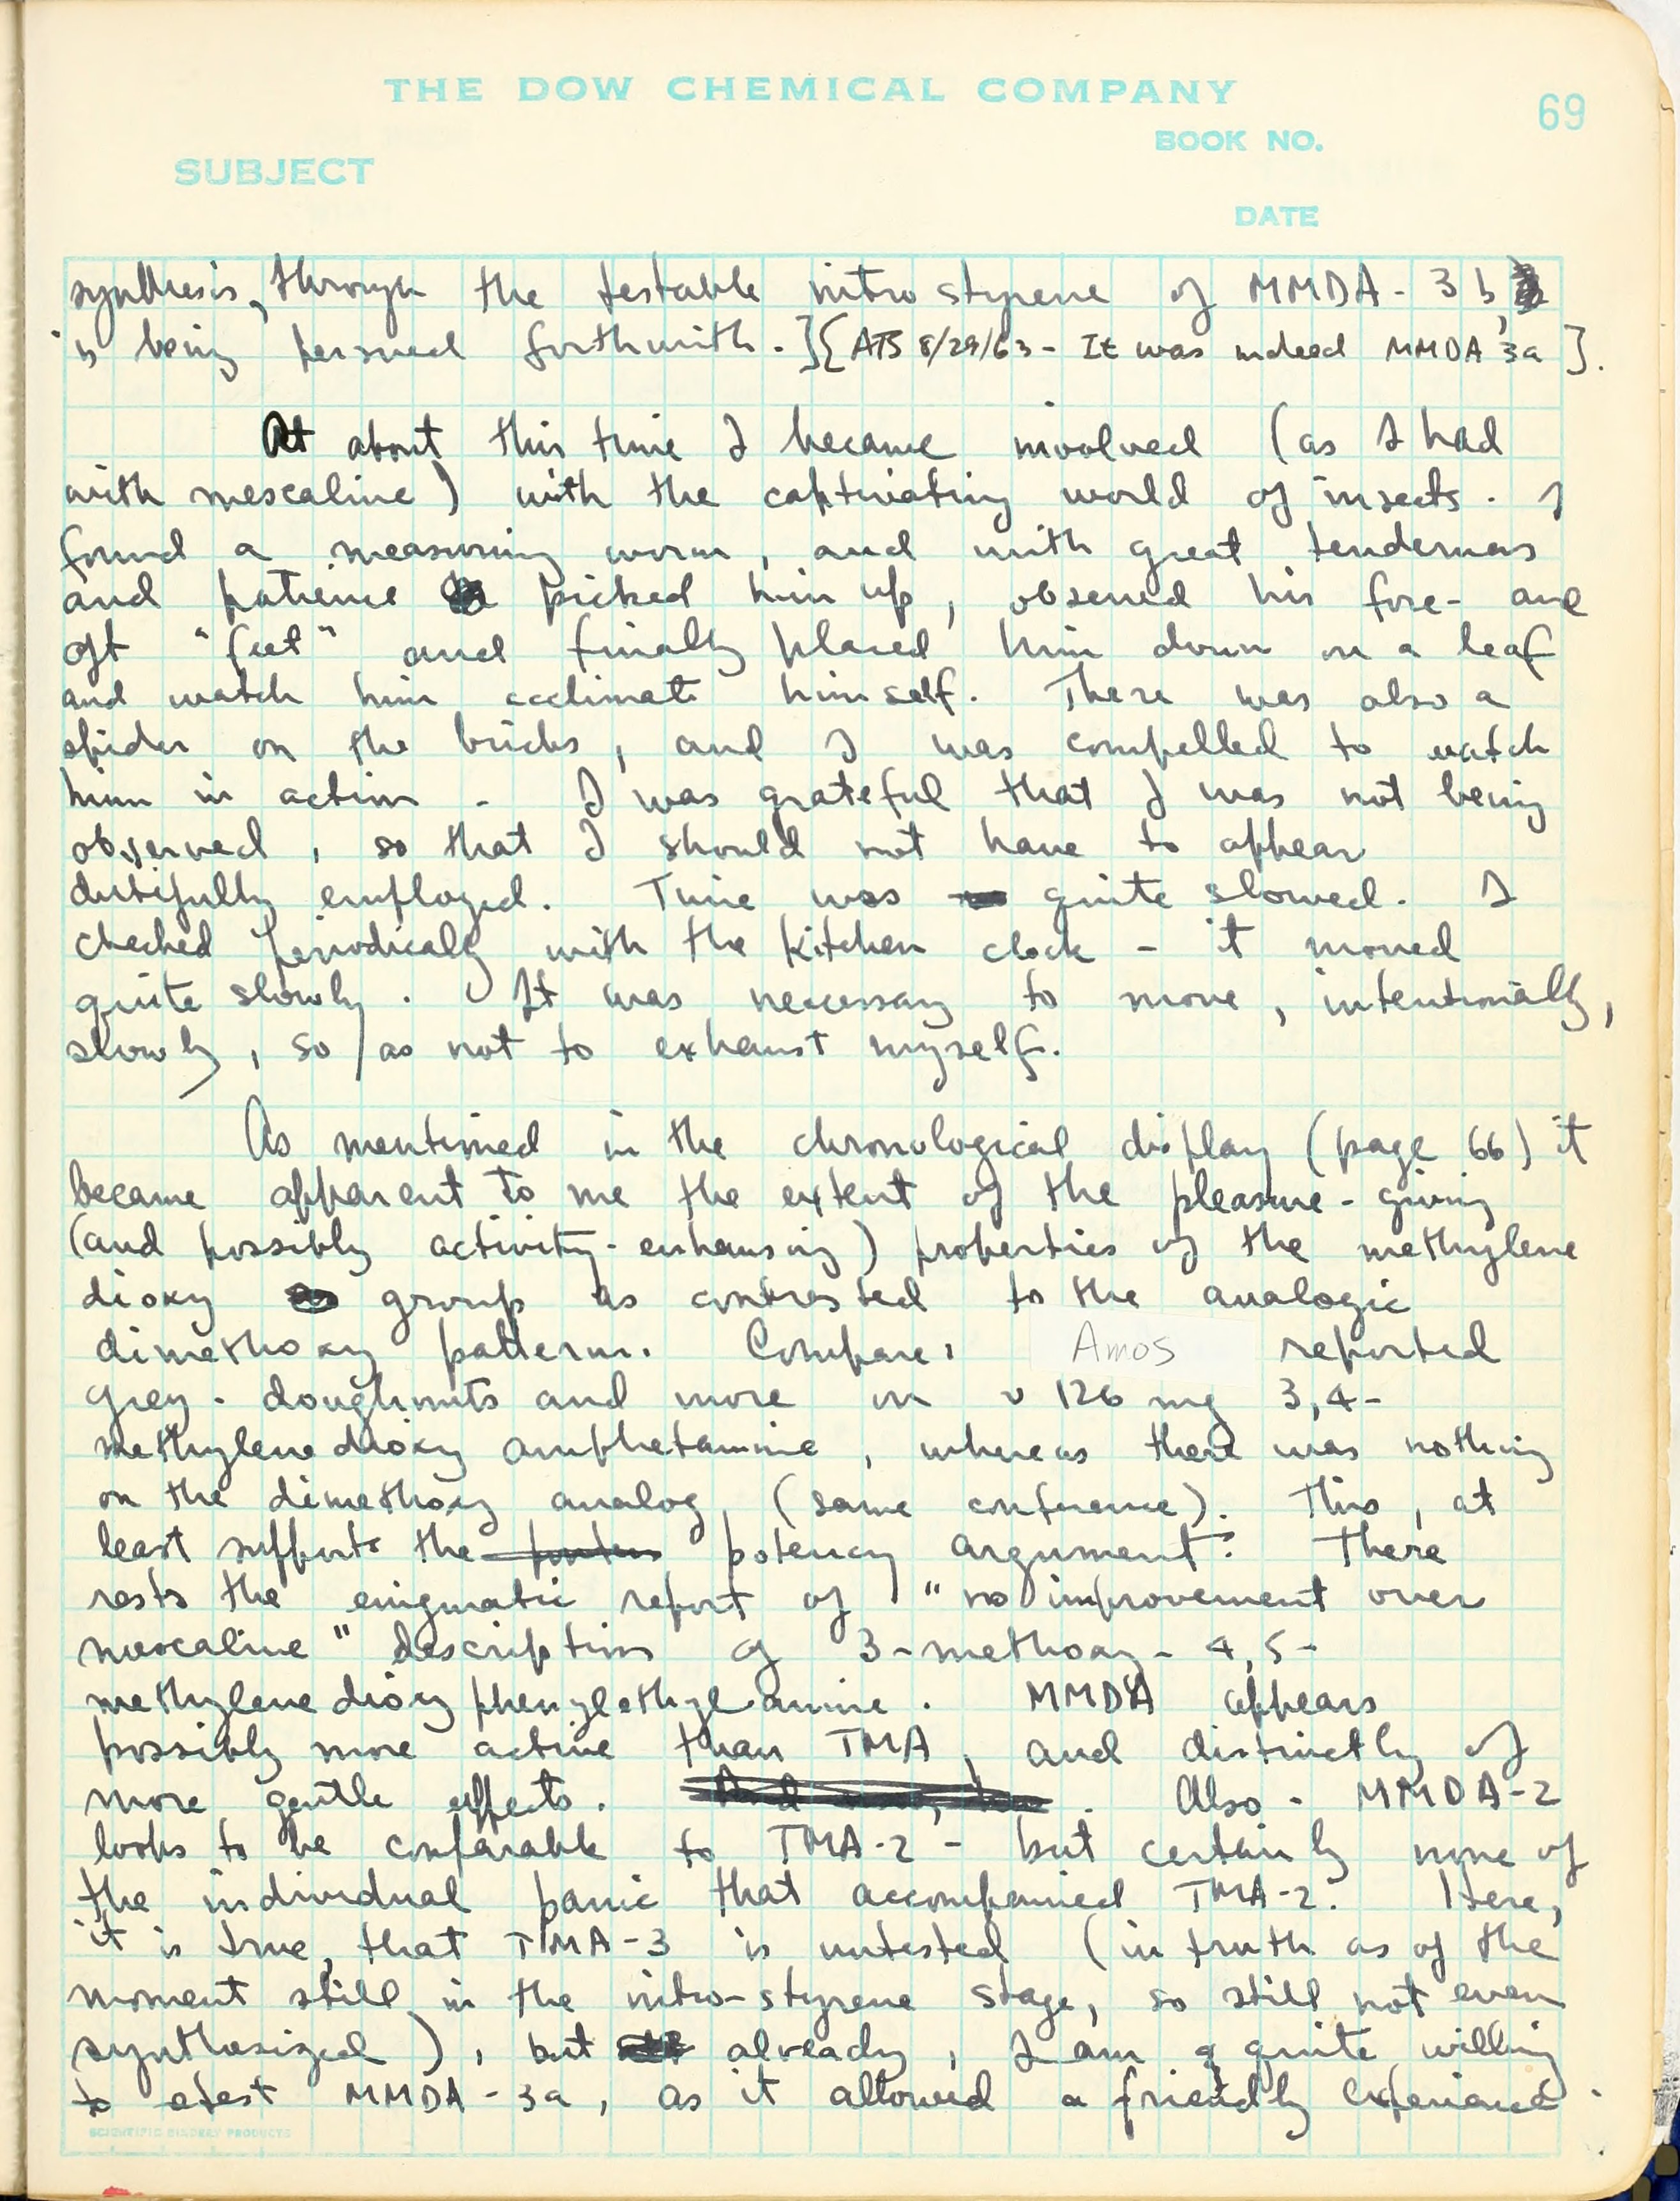 THE DOW CHEMICAL COMPANY
69
BOOK NO.
SUBJECT
DATE
synthesis, through the testable nitrostyrene of MMDA-3b,
is being persued forthwith.] [ATS 8/29/63 - It was indeed MMDA 3a].
At about this time I became involved (as I had
with mescaline) with the captivating world of insects. I
found a measuring worm, and with great tenderness
and patience picked him up, observed his fore- and
aft "feet" and finally placed him down on a leaf
and watch him acclimate himself. There was also a
spider on the bricks, and I was compelled to watch
him in action - I was grateful that I was not being
observed, so that I should not have to appear
dutifully employed. Time was quite slowed. I
checked periodically with the kitchen clock - it moved
quite slowly. It was necessary to move, intentionally,
slowly, so as not to exhaust myself.
As mentioned in the chronological display (page 66) it
became apparent to me the extent of the pleasure-giving
(and possibly activity-enhansing) properties of the methylene
dioxy group as contrasted to the analogic
dimethoxy pattern. Compare: Amos reported
grey-doughnuts and more on ~ 126 mg 3,4-
methylenedioxy amphetamine, whereas there was nothing
on the dimethoxy analog (same conference). This, at
least supports the potency argument. There
rests the enigmatic report of "no improvement over
mescaline" description of 3-methoxy-4,5-
methylenedioxy phenylethylamine. MMDA appears
possibly more active than TMA, and distinctly of
more gentle effects. Also - MMDA-2
looks to be comparable to TMA-2 - but certainly none of
the individual panic that accompanied TMA-2. Here,
it is true, that TMA-3 is untested (in truth as of the
moment still in the nitro-styrene stage, so still not even
synthesized), but already, I am quite willing
to MMDA-3a, as it allowed a friendly experience.
SCIENTIFIC BINDERY PRODUCTS